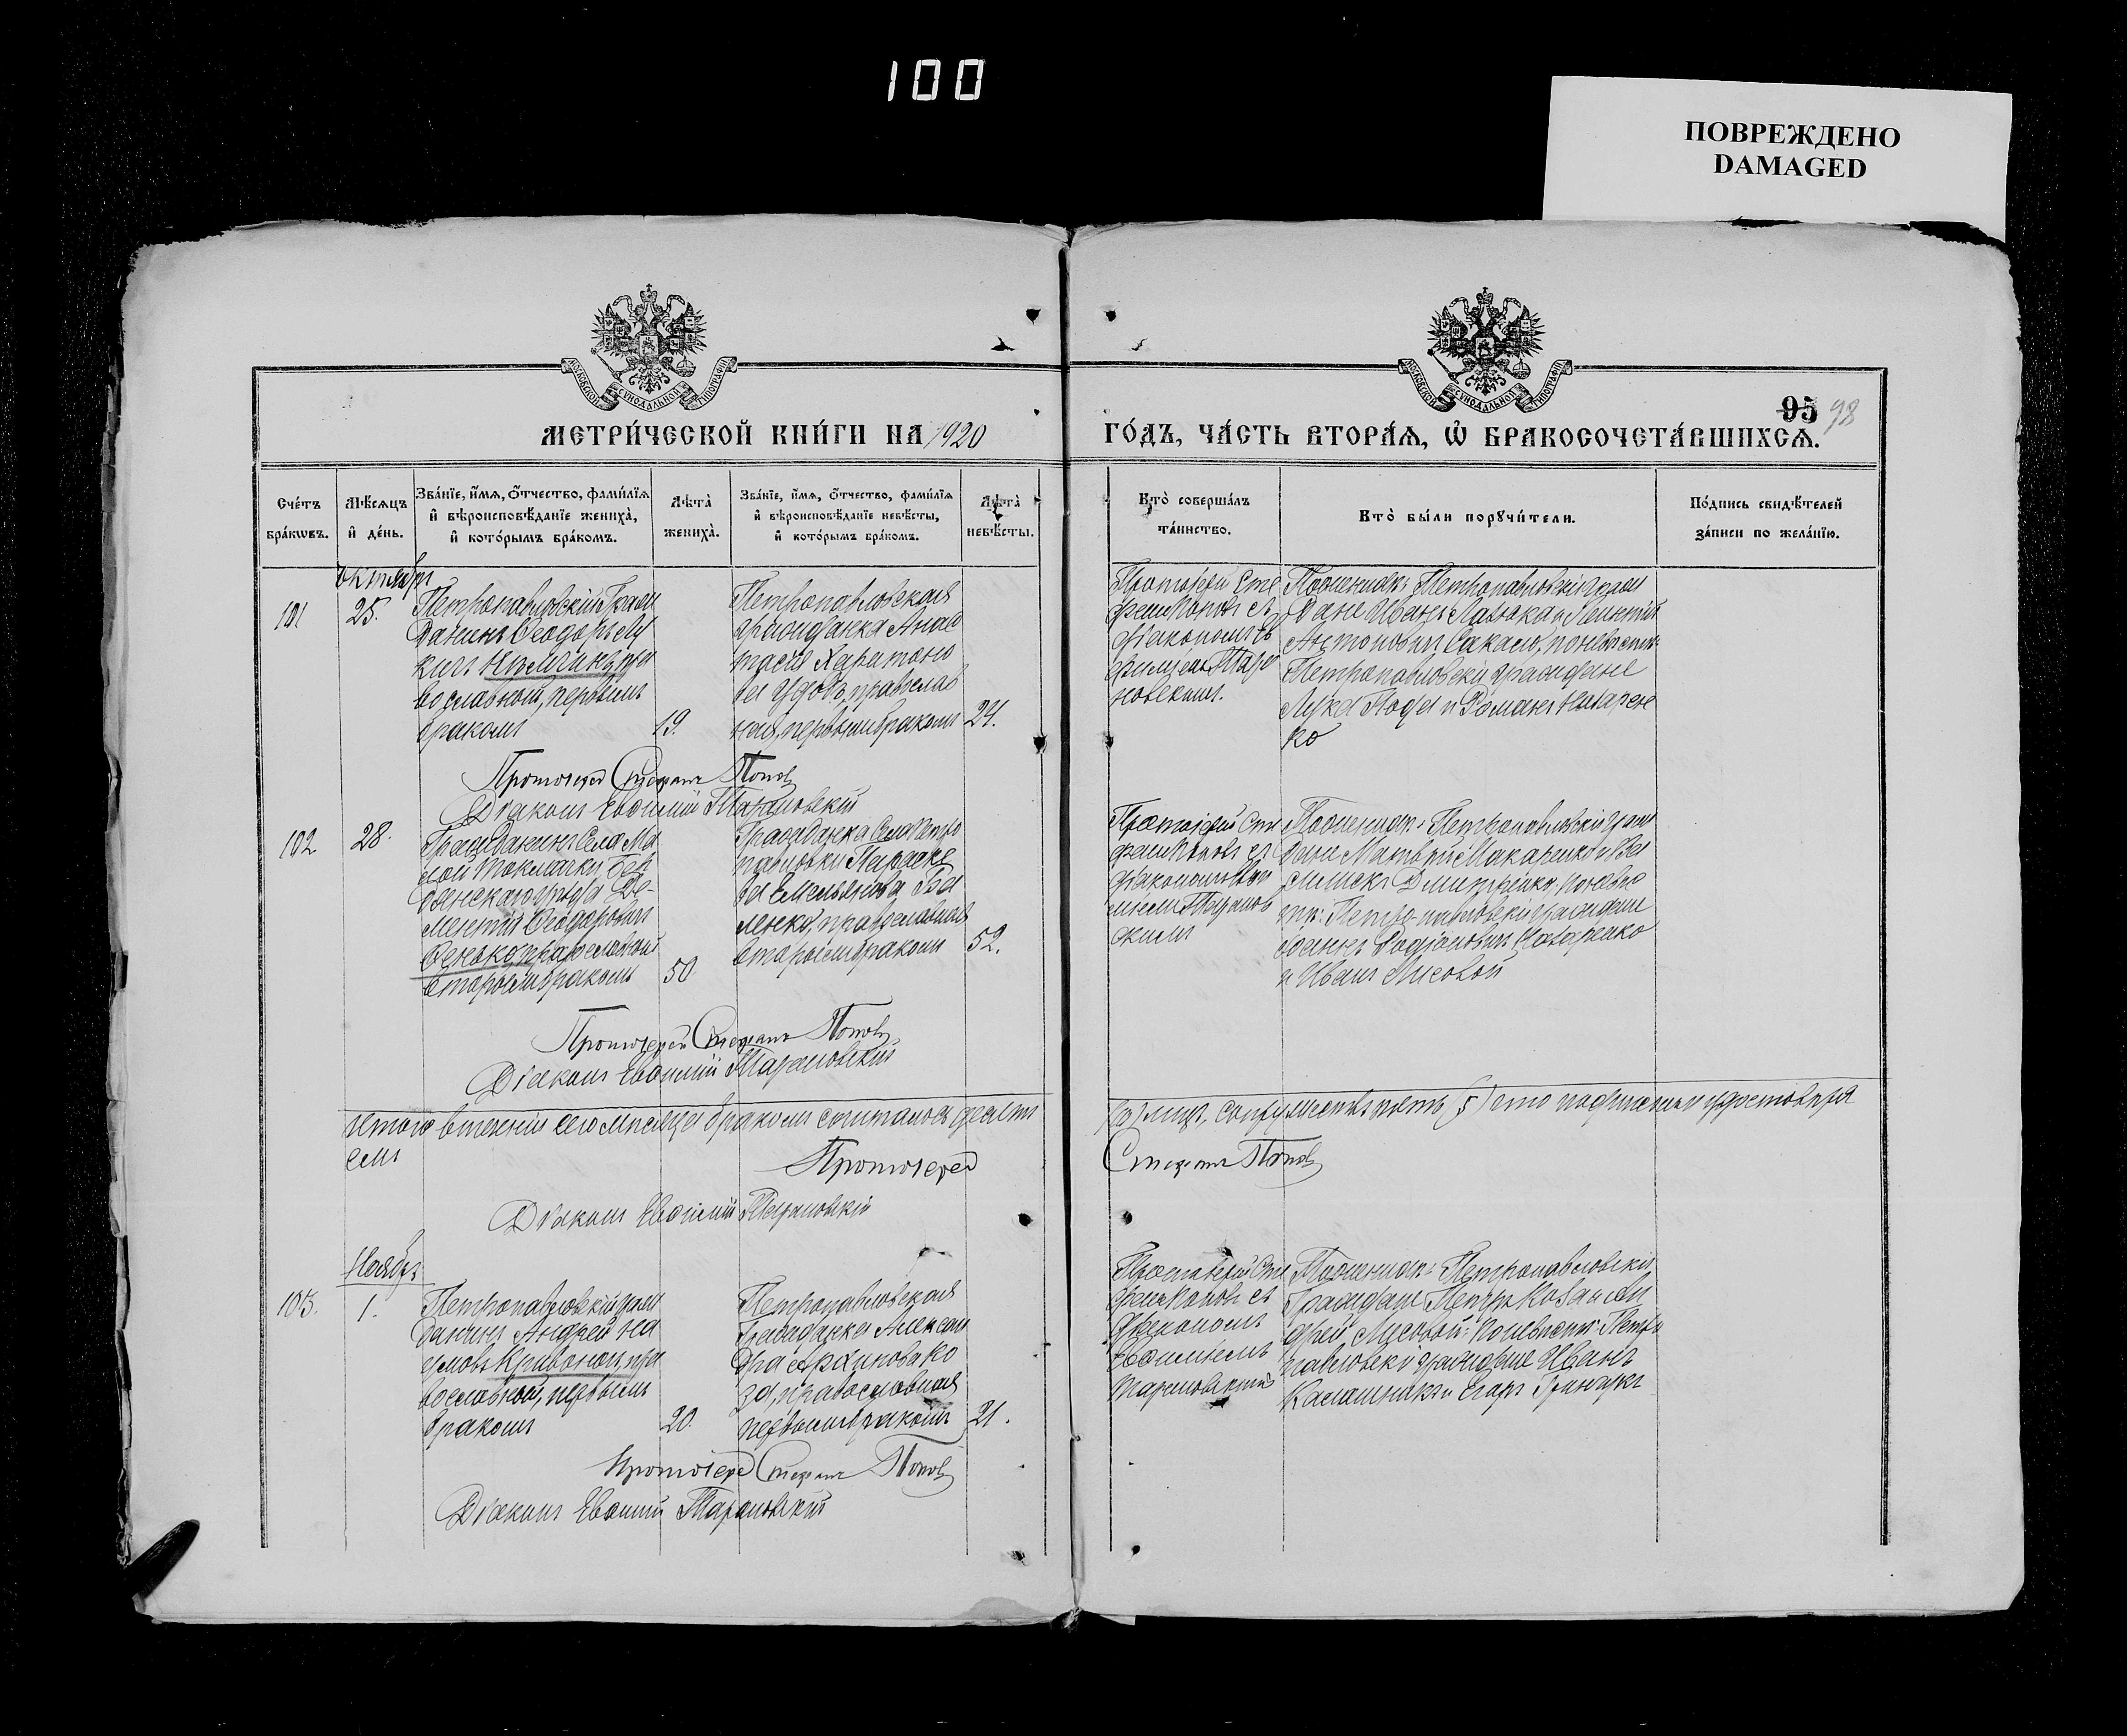 100
ПОВРЕЖДЕНО
DAMAGED
МОСКОВСКОЙ СѴНОДАЛЬНОЙ ТИПОГРАФІИ
МОСКОВСКОЙ СѴНОДАЛЬНОЙ ТИПОГРАФІИ
95 98
МЕТРИ́ЧЕСКОЙ КНИ́ГИ НА 1920
ГО́ДЪ, ЧА́СТЬ ВТОРА́Ѧ, Ѽ БРАКОСОЧЕТА́ВШИХСѦ.
Сче́тъ бра́кѡвъ.
Мѣ́сѧцъ и҆ де́нь.
Зва́нїе, и҆́мѧ, ѻ҆́тчество, фами́лїѧ
и҆ вѣроисповѣ́данїе жениха̀,
и҆ кото́рымъ бра́комъ.
Лѣта̀ жениха̀.
Зва́нїе, и҆́мѧ, ѻ҆́тчество, фами́лїѧ
и҆ вѣроисповѣ́данїе невѣ́сты,
и҆ кото́рымъ бра́комъ.
Лѣта̀ невѣ́сты.
Кто̀ соверша́лъ
та́инство.
Кто̀ бы́ли порꙋчи́тели.
По́дпись свидѣ́телей
за́писи по жела́нїю.
октябрь
101
25.
Петропавловскій Граж
данинъ Ѳеодоръ Лу
кичъ
вославный, первымъ
бракомъ
19.
Петропавловская
гражданка Анас
тасія Харитоно
ва православ
ная, первымъ бракомъ
24.
Протоіерей Сте
фанъ Поповъ съ
діакономъ Ев
фиміемъ Таро
новскимъ.
По женихѣ: Петропавловскіе граж
дане Иванъ и Леонтій
Антоновичъ по невѣстѣ:
Петропавловскіе граждане
Лука и Романъ Назарен
ко
Протоіерей Стефанъ Поповъ
Діаконъ Евѳимій Тарановскій
102
28.
Гражданинъ Села Ма
лой Токмачки, Бер
дянскаго уѣзда Де-
ментій Ѳеодоровичъ
православный
вторымъ бракомъ
50
Гражданка Села Петро
павловки Параске
ва Емельянова
православная
вторымъ бракомъ
52.
Протоіерей Сте
фанъ Поповъ съ
діакономъ Евѳи
міемъ Таранов
скимъ
По женихѣ: Петропавловскіе граж
дане Матвѣй Макаренко и Ва
силискъ Дмитренко, по невѣс
тѣ: Петропавловскіе граждане
Іоаннъ Родіоновичъ Назаренко
и Иванъ Лисовой
Протоіерей Стефанъ Поповъ
Діаконъ Евѳимій Тарановскій
Итого въ теченіи сего мѣсяца бракомъ сочеталось десять
(10) лицъ, супружествъ пять (5) что подписями удостовѣря
емъ
Протоіерей
Стефанъ Поповъ
Діаконъ Евѳимій Тарановскій
Ноябрь
103.
1.
Петропавловскій граж
данинъ Андрей На
умовъ Кривонос, пра
вославный, первымъ
бракомъ
20.
Петропавловская
Гражданка Алексан
дра Ко
за, православная
первымъ бракомъ
21.
Протоіерей Сте
фанъ Поповъ съ
діакономъ
Евѳиміемъ
Тарановскимъ
По женихѣ: Петропавловскіе
Граждане Петръ Коза и Ан
дрей Лисовой: По невѣстѣ: Петро
павловскіе граждане Иванъ
Калашникъ и Егоръ
Протоіерей Стефанъ Поповъ
Діаконъ Евѳимій Тарановскій